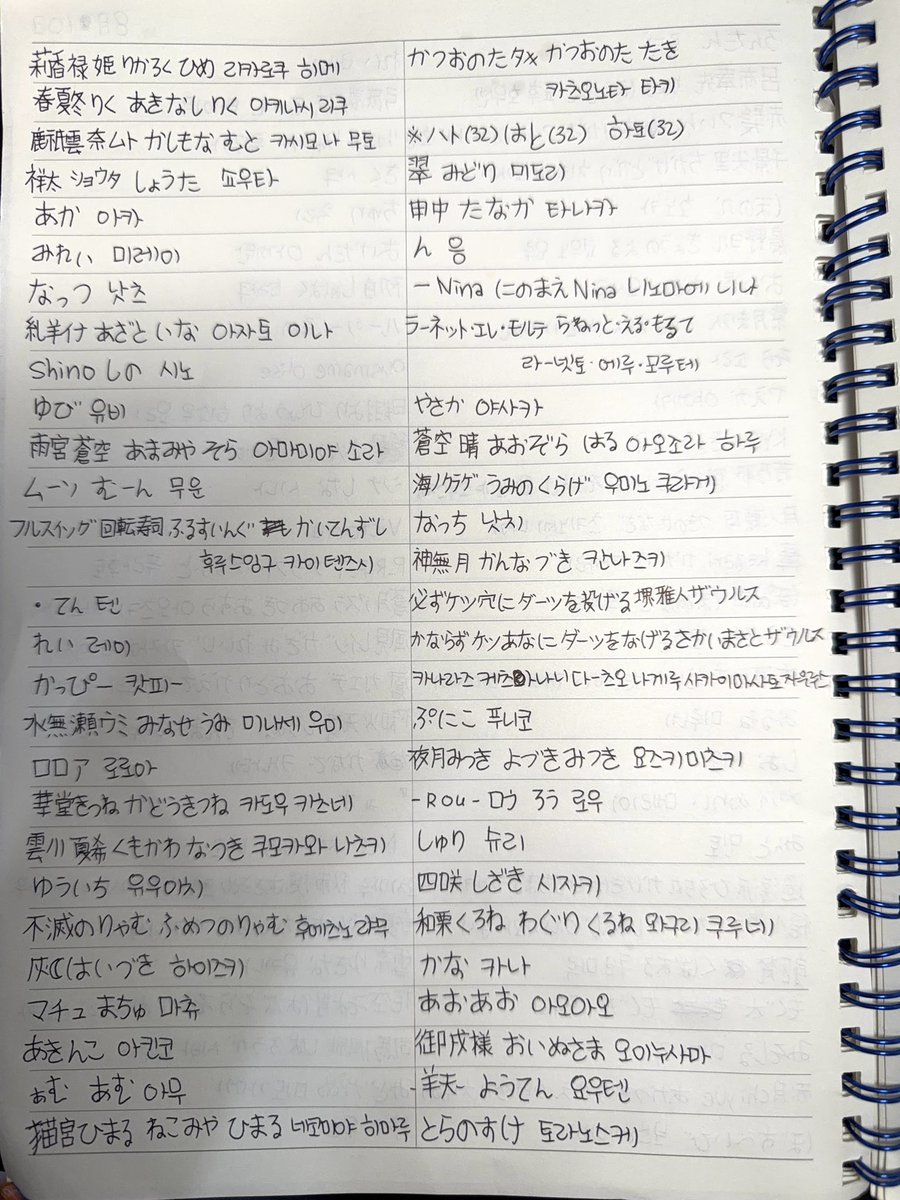 莉香禄姫 りかろく ひめ 리카로쿠 히메
春夏冬りく あきなし りく 아키나시 리쿠
麒麟雲奈ムト かしもな むと 카시모나 무토
祥太 ショウタ しょうた 쇼우타
あか 아카
みれい 미레이
なっつ 낫츠
糺羊イナ あざと いな 아자토 이나
Shino しの 시노
ゆび 유비
雨宮蒼空 あまみや そら 아마미야 소라
ムーン むーん 무운
フルスイング回転寿司 ふるすいんぐ かいてんずし
후루스잉구 카이텐즈시
・てん 텐
れい 레이
かっぴー 캇피ー
水無瀬ウミ みなせ うみ 미나세 우미
ロロア 로로아
華堂きつね かどうきつね 카도우 키츠네
雲川 夏希 くもかわ なつき 쿠모카와 나츠키
ゆういち 유우이치
不滅のりゃむ ふめつのりゃむ 후메츠노 랴무
灰☾ はいづき 하이즈키
マチュ まちゅ 마츄
あきんこ 아킨코
ぁむ あむ 아무
猫宮ひまる ねこみや ひまる 네코미야 히마루
かつおのたタキ かつおのた たき
카츠오노타 타키
※ハト(32) はと(32) 하토(32)
翠 みどり 미도리
申中 たなか 타나카
ん 응
一Nina にのまえNina 니노마에 니나
ラーネット・エレ・モルテ らねっと・える・もるて
라ー넷토・에루・모루테
やさか 야사카
蒼空 晴 あおぞら はる 아오조라 하루
海ノクラゲ うみのくらげ 우미노 쿠라게
なっち 낫치
神無月 かんなづき 칸나즈키
必ずケツ穴にダーツを投げる堺雅人ザウルス
かならずケツあなにダーツをなげるさかいまさとザウルス
카나라즈 케츠아나니 다ー츠오 나게루 사카이마사토자우루스
ぷにこ 푸니코
夜月みつき よづきみつき 요즈키미츠키
-ROU- ロウ ろう 로우
しゅり 슈리
四咲 しざき 시자키
和栗くろね わぐり くるね 와구리 쿠루네
かな 카나
あおあお 아오아오
御戌様 おいぬさま 오이누사마
羊天 ようてん 요우텐
とらのすけ 토라노스케